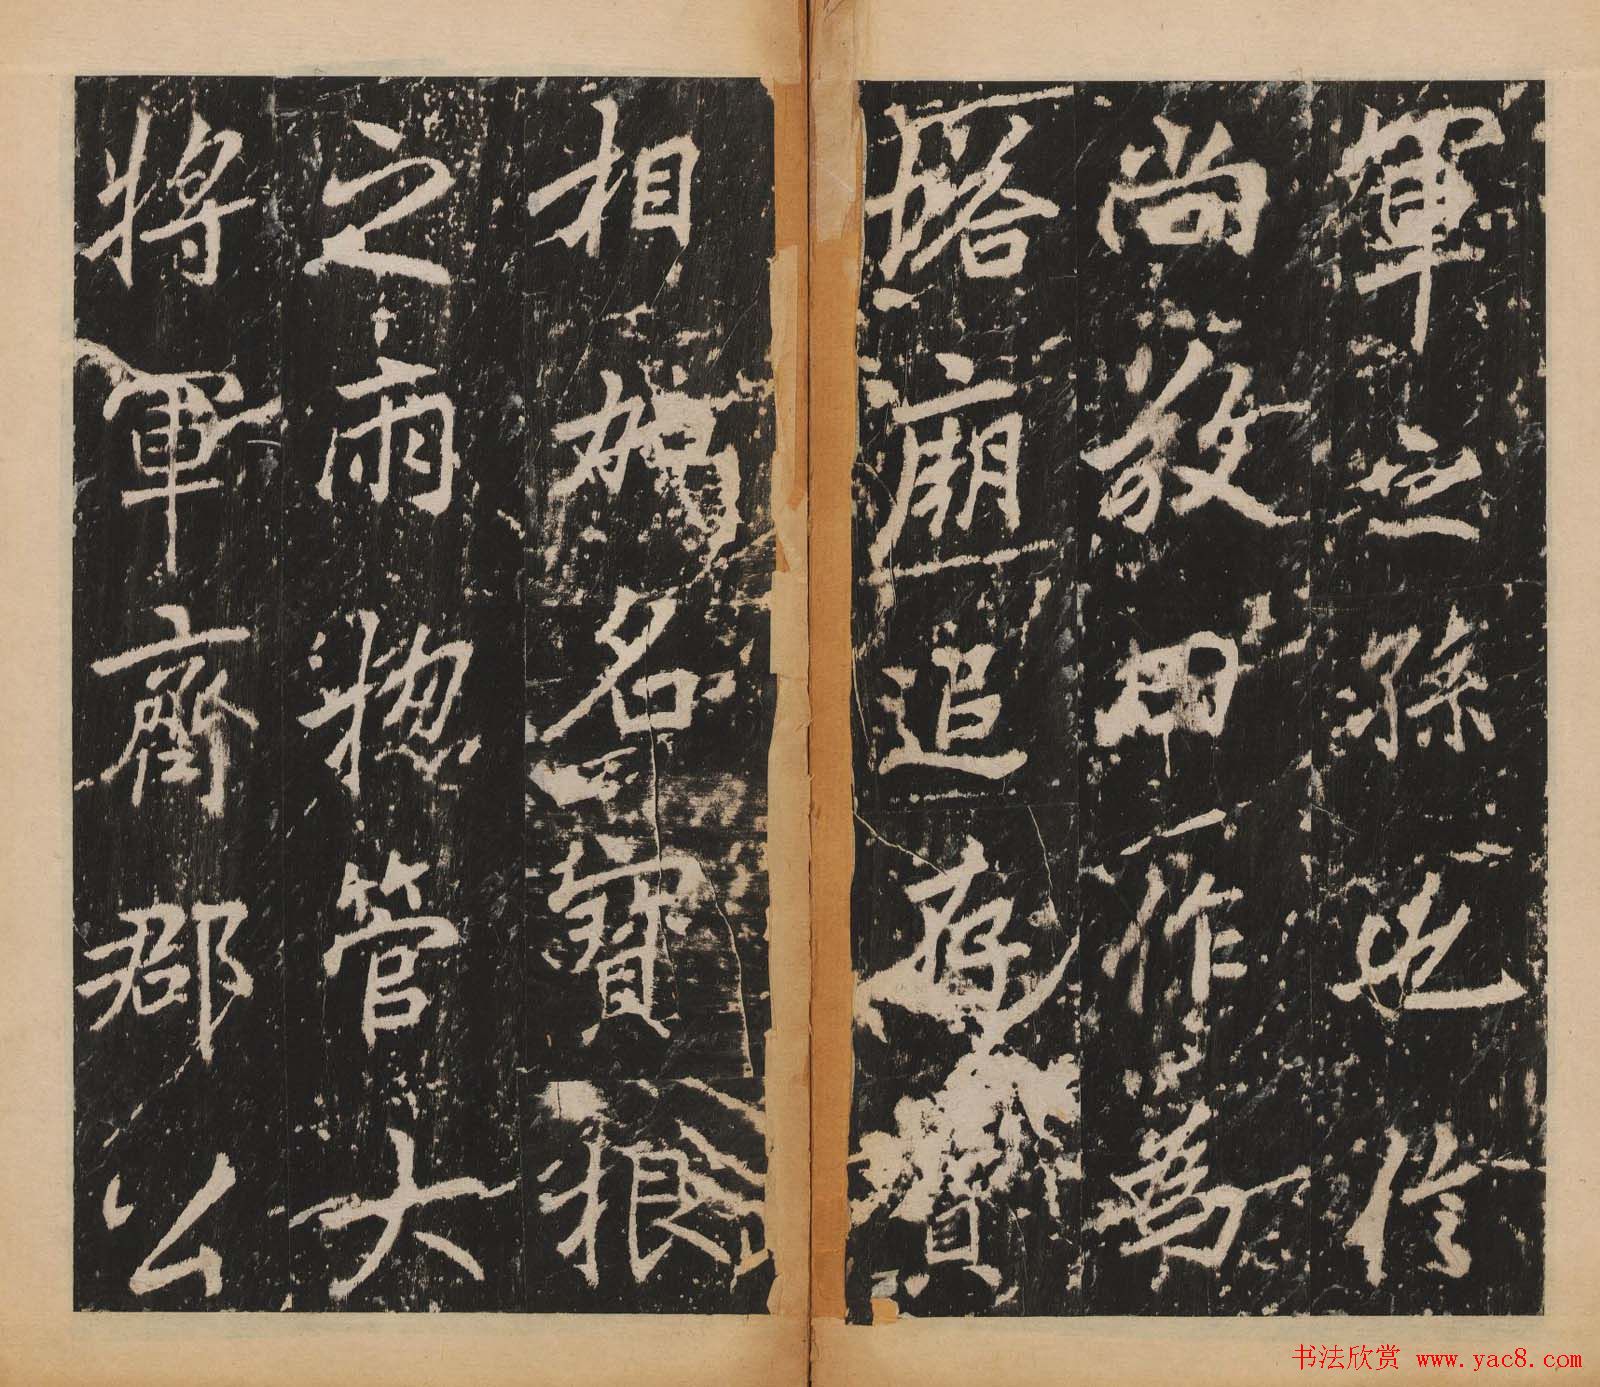 軍之孫也信
尚敬田作為
塔廟追存寶
相加名寶根
之雨揔管大
將軍齊郡公
书法欣赏 www.yac8.com